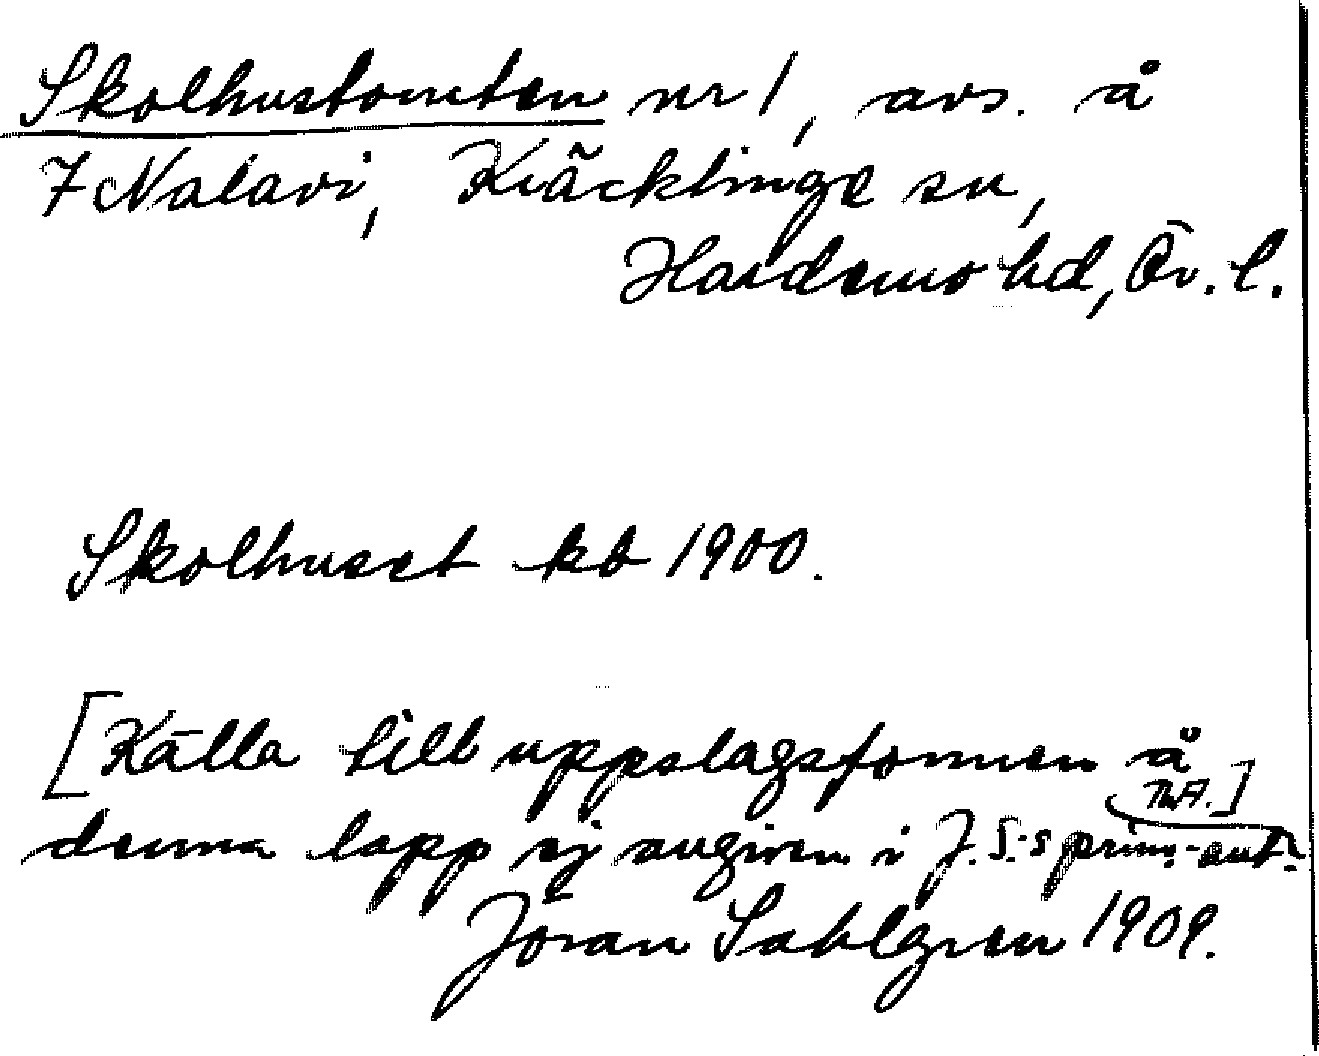 Skolhustomten nr 1, avs. å
7 Nalavi, Kräcklinge sn,
Hardemo hd, Ör. l.
Skolhuset kb 1900.
[Källa till uppslagsformen å
denna lapp ej angiven i J.S:s prim.-ant.
Th.A.]
Jöran Sahlgren 1909.